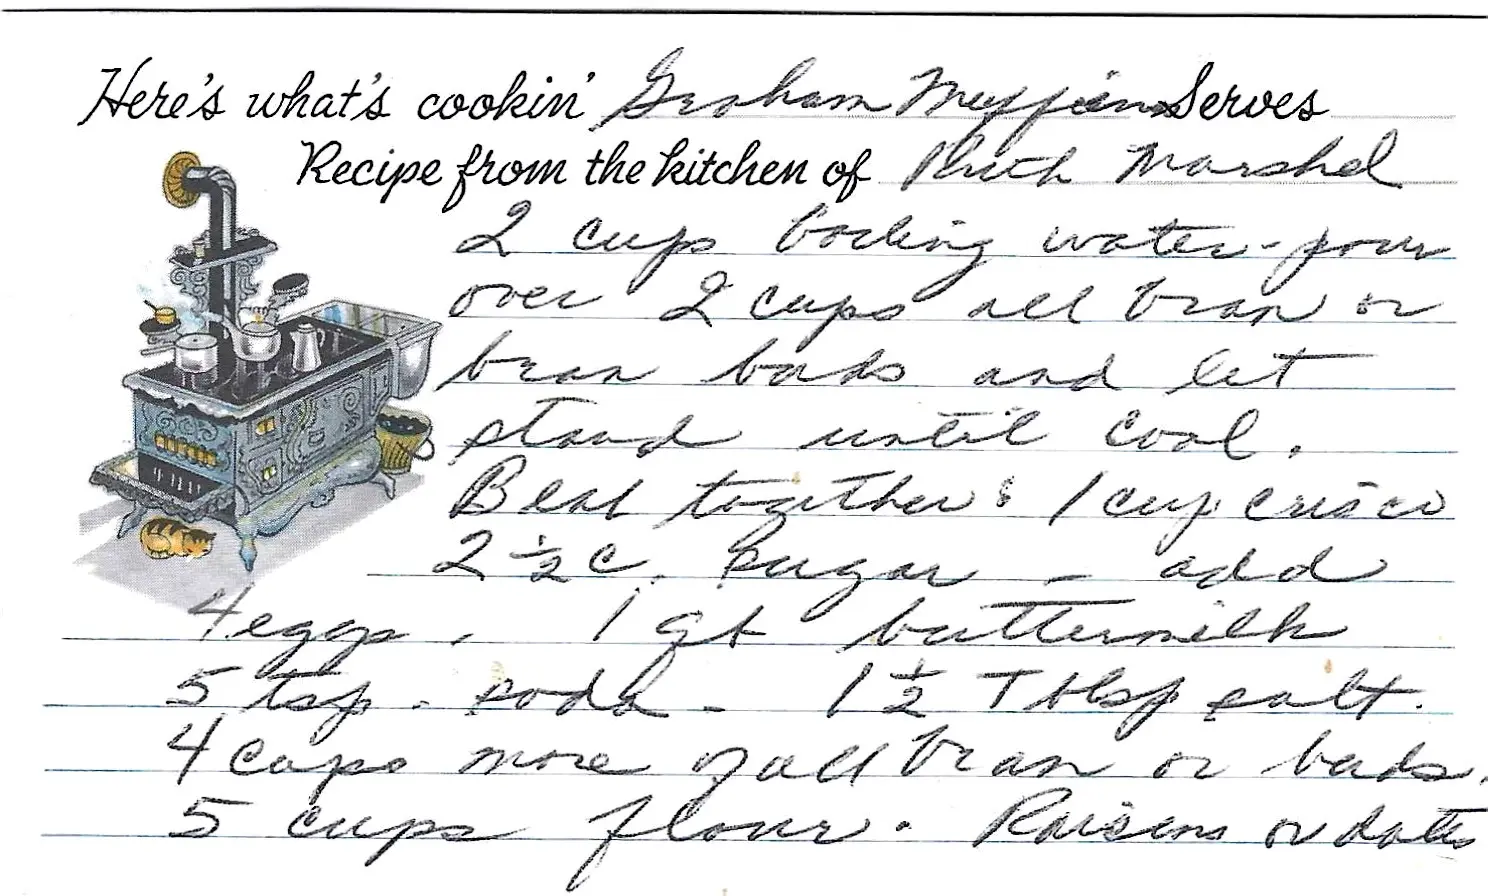 Here's what's cookin' Graham Muffins Serves
Recipe from the kitchen of Ruth Marshel
2 cups boiling water - pour
over 2 cups all bran or
bran buds and let
stand until cool.
Beat together: 1 cup crisco
2 ½ c. sugar - add
4 eggs, 1 qt buttermilk
5 tsp. soda - 1 ½ Tblsp salt.
4 cups more of all bran or buds.
5 cups flour. Raisins or dates